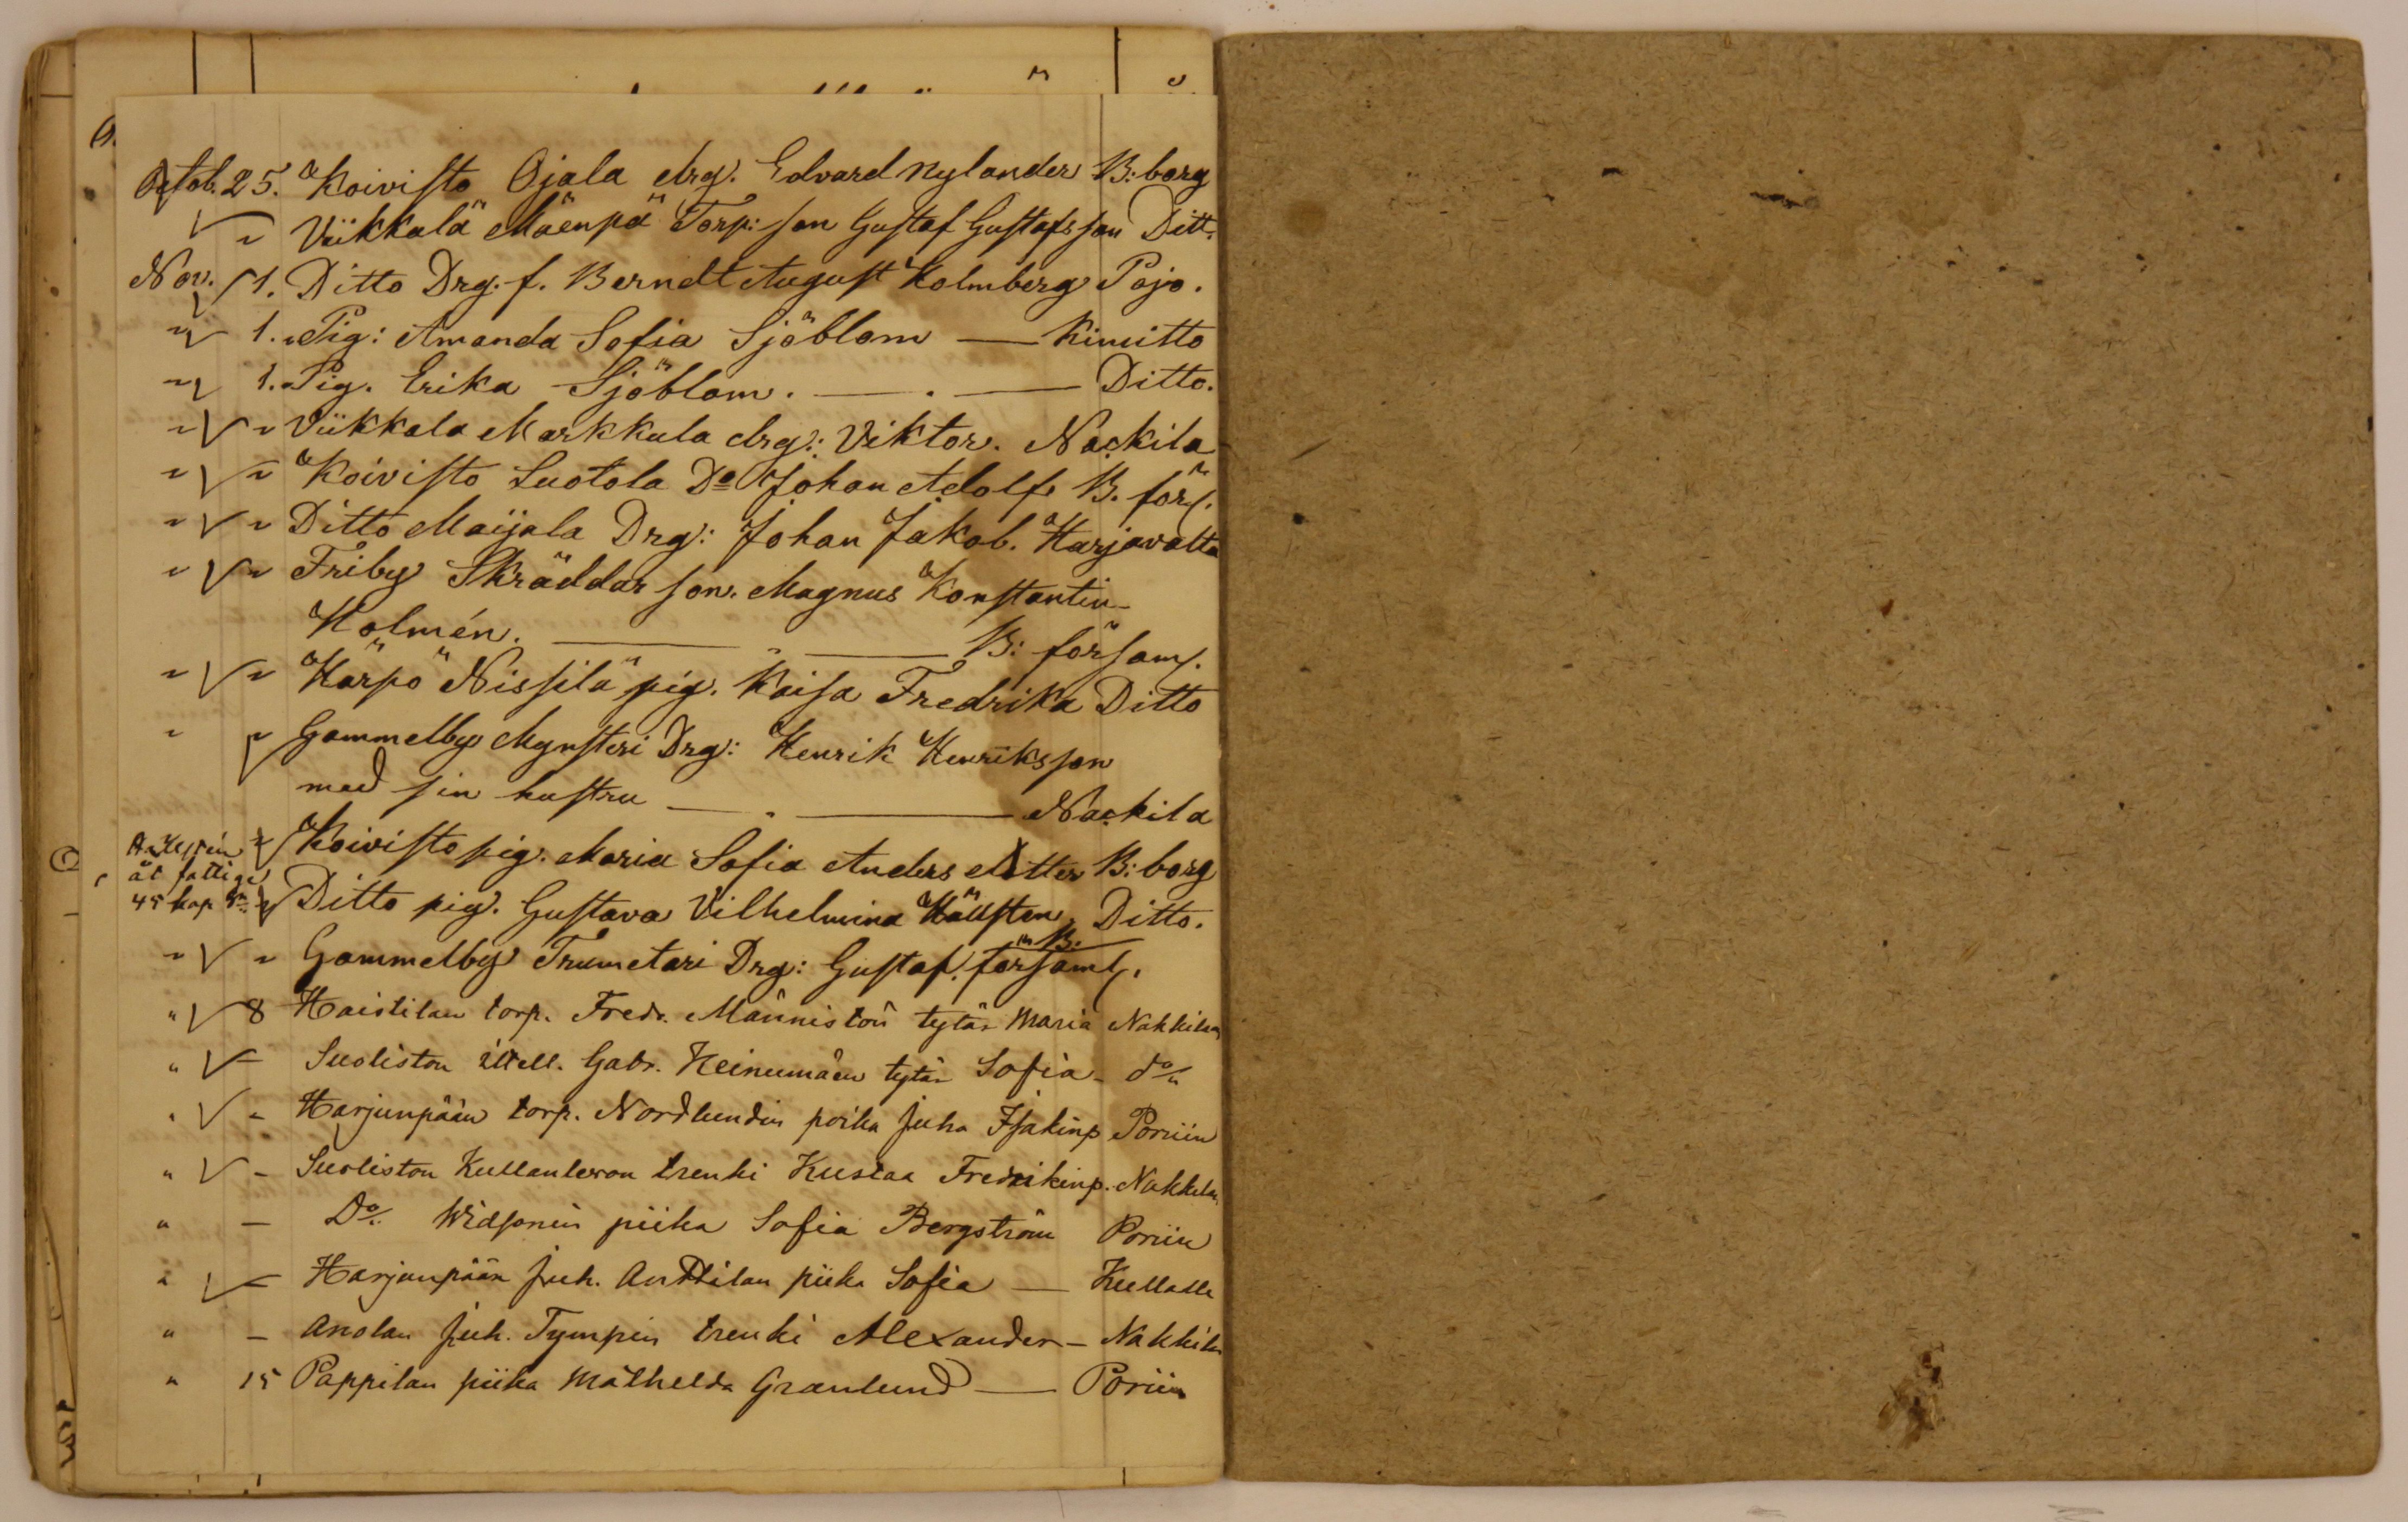 Octob. 25. Koivisto Ojala drg. Edvard Nylander B:borg
" Viikkalä Mäenpä Torp: son Gustaf Gustafsson Ditt.
Nov. 1. Ditto Drg. f. Berndt August Holmberg Pojo.
" 1. Pig: Amanda Sofia Sjöblom — Kimitto
" 1. Pig. Erika Sjöblom. — . — Ditto.
" " Viikkala Markkula drg: Viktor. Nackila
" " Koivisto Suotola Do Johan Adolf B. förs.
" " Ditto Maijala Drg: Johan Jakob. Harjavalta
" " Friby Skräddar son. Magnus Konstantin
Holmén. — — B: församl.
" " Härpö Nissilä pig. Kaisa Fredrika Ditto
" " Gammelby Mynsteri Drg: Henrik Henriksson
med sin hustru — . — Nackila
Koivisto pig. Maria Sofia Anders dotter B:borg
åt fattige
45 kop Ditto pig. Gustava Vilhelmina Hällsten, Ditto.
" " Gammelby Trumetari Drg: Gustaf. B. församl.
" 8 Haistilan torp. Fredr. Männistön tytär Maria Nakkilaan
" – Suoliston itsell. Gabr. Heinumäen tytär Sofia – do
" – Harjunpään torp. Nordlundin poika Juha Isakinp. Poriin
" – Suoliston Kullanlevon trenki Kustaa Fredrikinp. Nakkilan
" – Do Widsonin piika Sofia Bergström Poriin
" – Harjunpään Juh. Anttilan piika Sofia — Kullalle
" – Anolan Juh. Tympin trenki Alexander – Nakkila
" 15 Pappilan piika Mathelda Granlund — Poriin